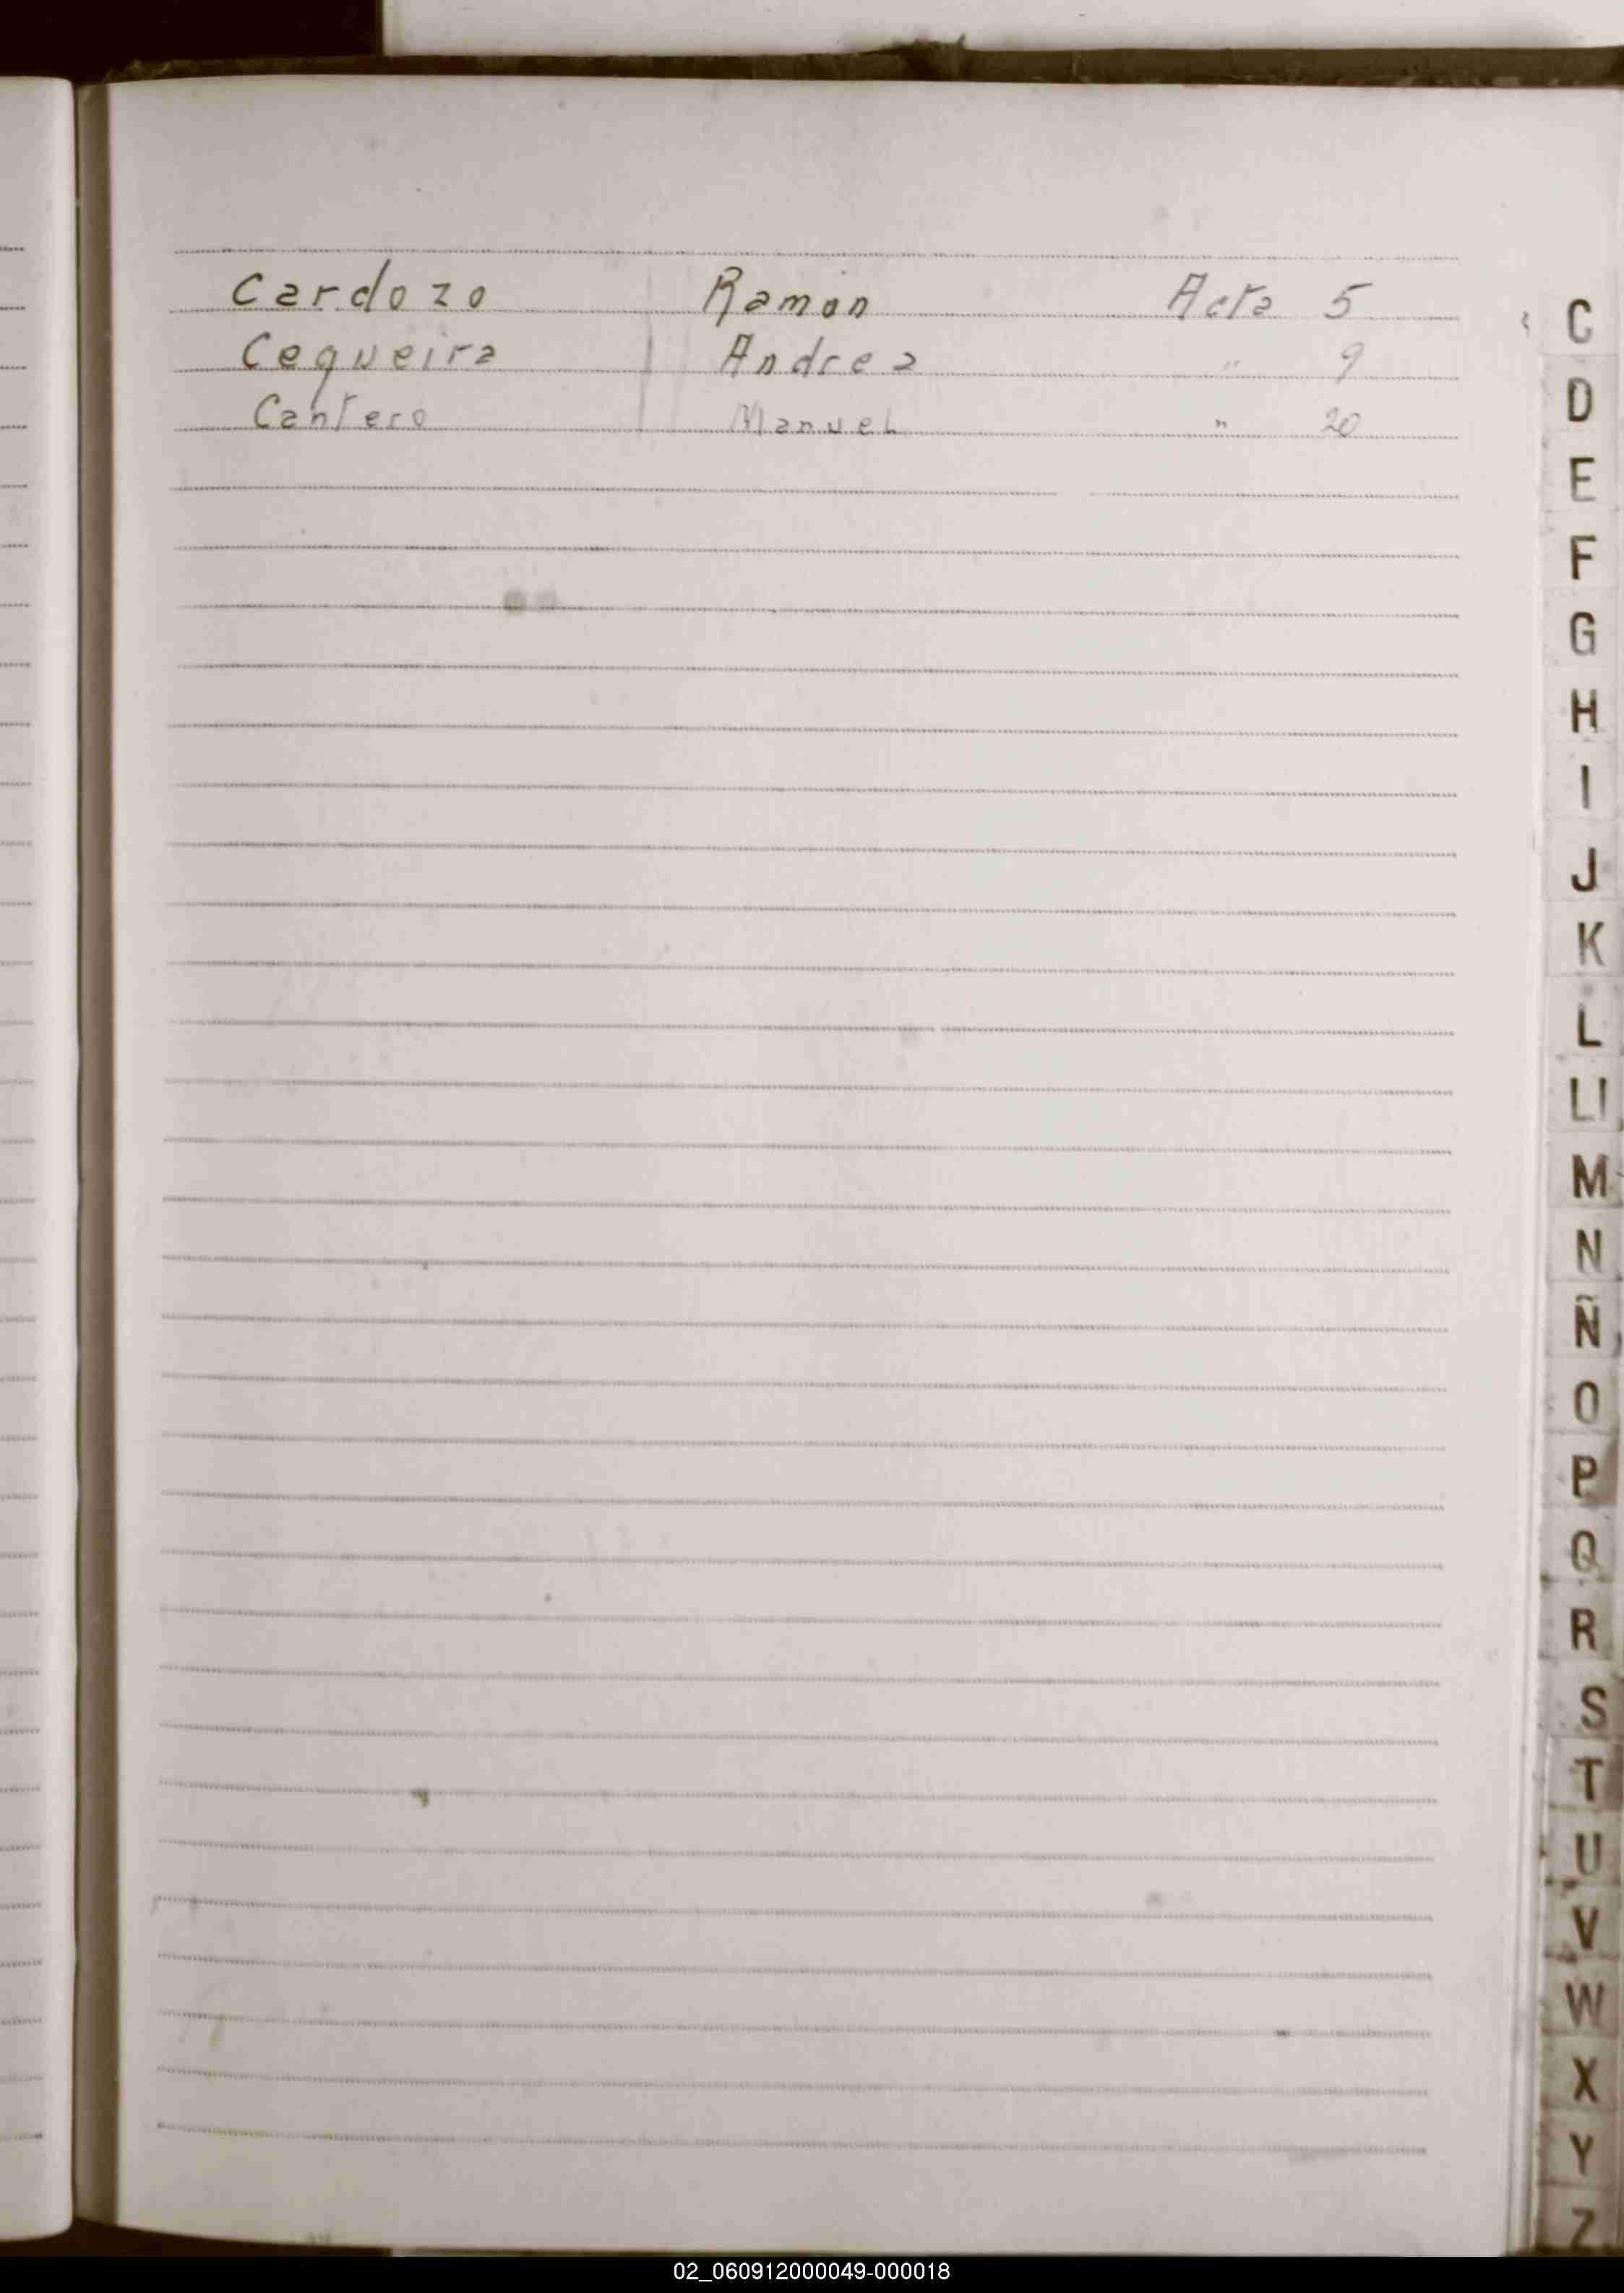 Cardozo Ramón Acta 5
Cequeira Andrea " 9
Cantero Manuel " 20
C
D
E
F
G
H
I
J
K
L
Ll
M
N
Ñ
O
P
Q
R
S
T
U
V
W
X
Y
Z
02_060912000049-000018